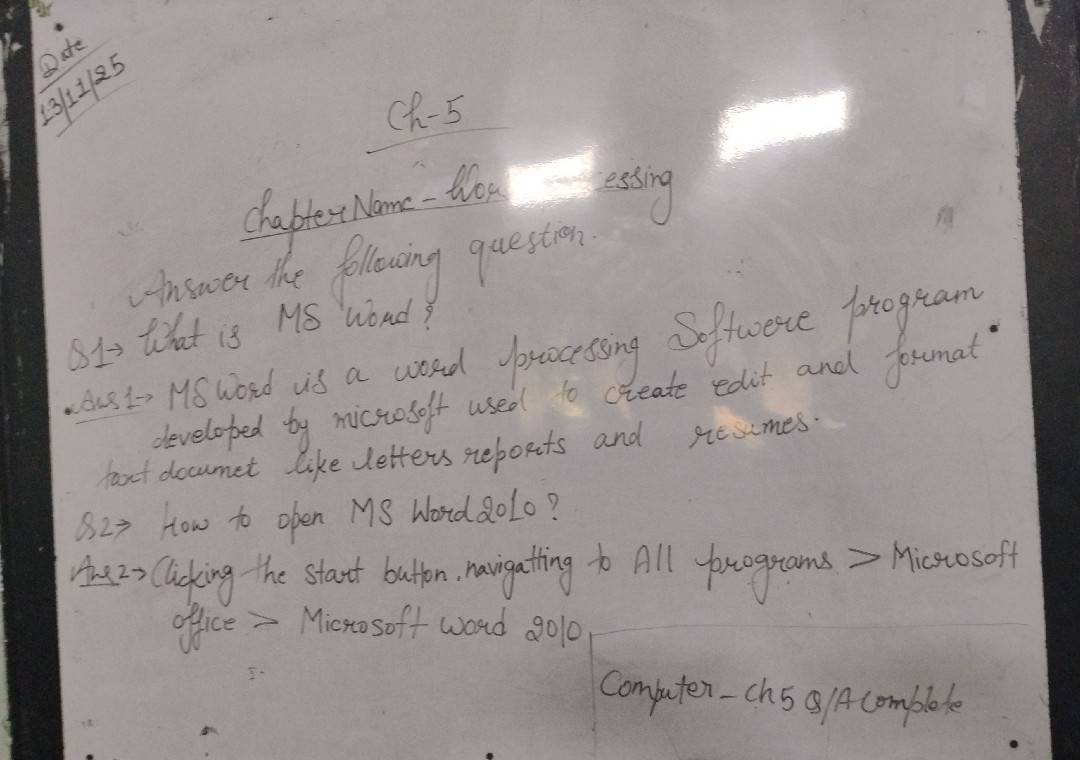 Date
13/11/25
Ch-5
Chapter Name - Wor essing
Answer the following question.
Q1→ What is MS Word?
Ans 1→ MS Word is a word processing Softwere program
developed by microsoft used to create edit and format
taxt documet like letters reports and resumes.
Q2→ How to open MS Word 2010?
Ans 2→ Clicking the start button, navigatting to All programs > Microsoft
office > Microsoft word 2010
Computer - Ch 5 Q/A Complete